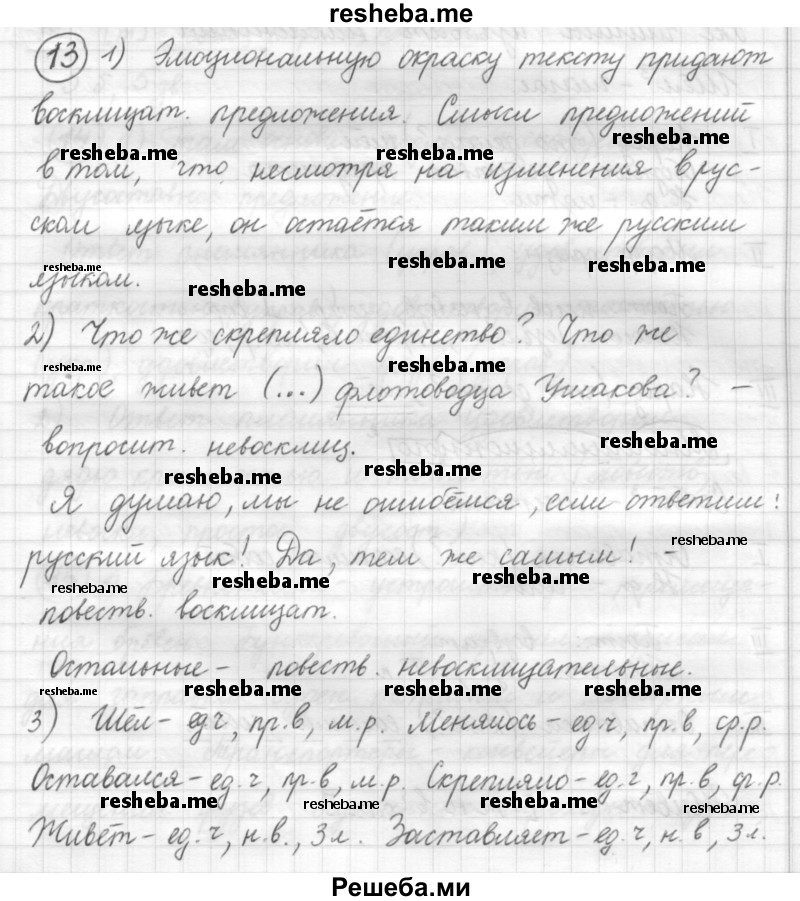 resheba.me
13 1) Эмоциональную окраску тексту придают
восклицат. предложения. Смысл предложений
resheba.me
resheba.me resheba.me
в том, что несмотря на изменения в рус-
ском языке, он остаётся таким же русским
resheba.me resheba.me resheba.me
языком.
resheba.me
2) Что же скрепляло единство? Что же
resheba.me resheba.me
такое живет (...) флотоводца Ушакова? –
вопросит. невосклиц.
resheba.me
resheba.me resheba.me
Я думаю, мы не ошибёмся, если ответим:
resheba.me
русский язык! Да, тем же самым! –
resheba.me resheba.me resheba.me
повеств. восклицат.
Остальные – повеств. невосклицательные.
resheba.me resheba.me resheba.me resheba.me
3) Шёл – ед.ч, пр.в, м.р. Менялось – ед.ч, пр.в, ср.р.
Оставался – ед.ч, пр.в, м.р. Скрепляло – ед.ч, пр.в, ср.р.
resheba.me resheba.me resheba.me resheba.me
Живёт – ед.ч, н.в., 3л. Заставляет – ед.ч, н.в, 3л.
Решеба.ми